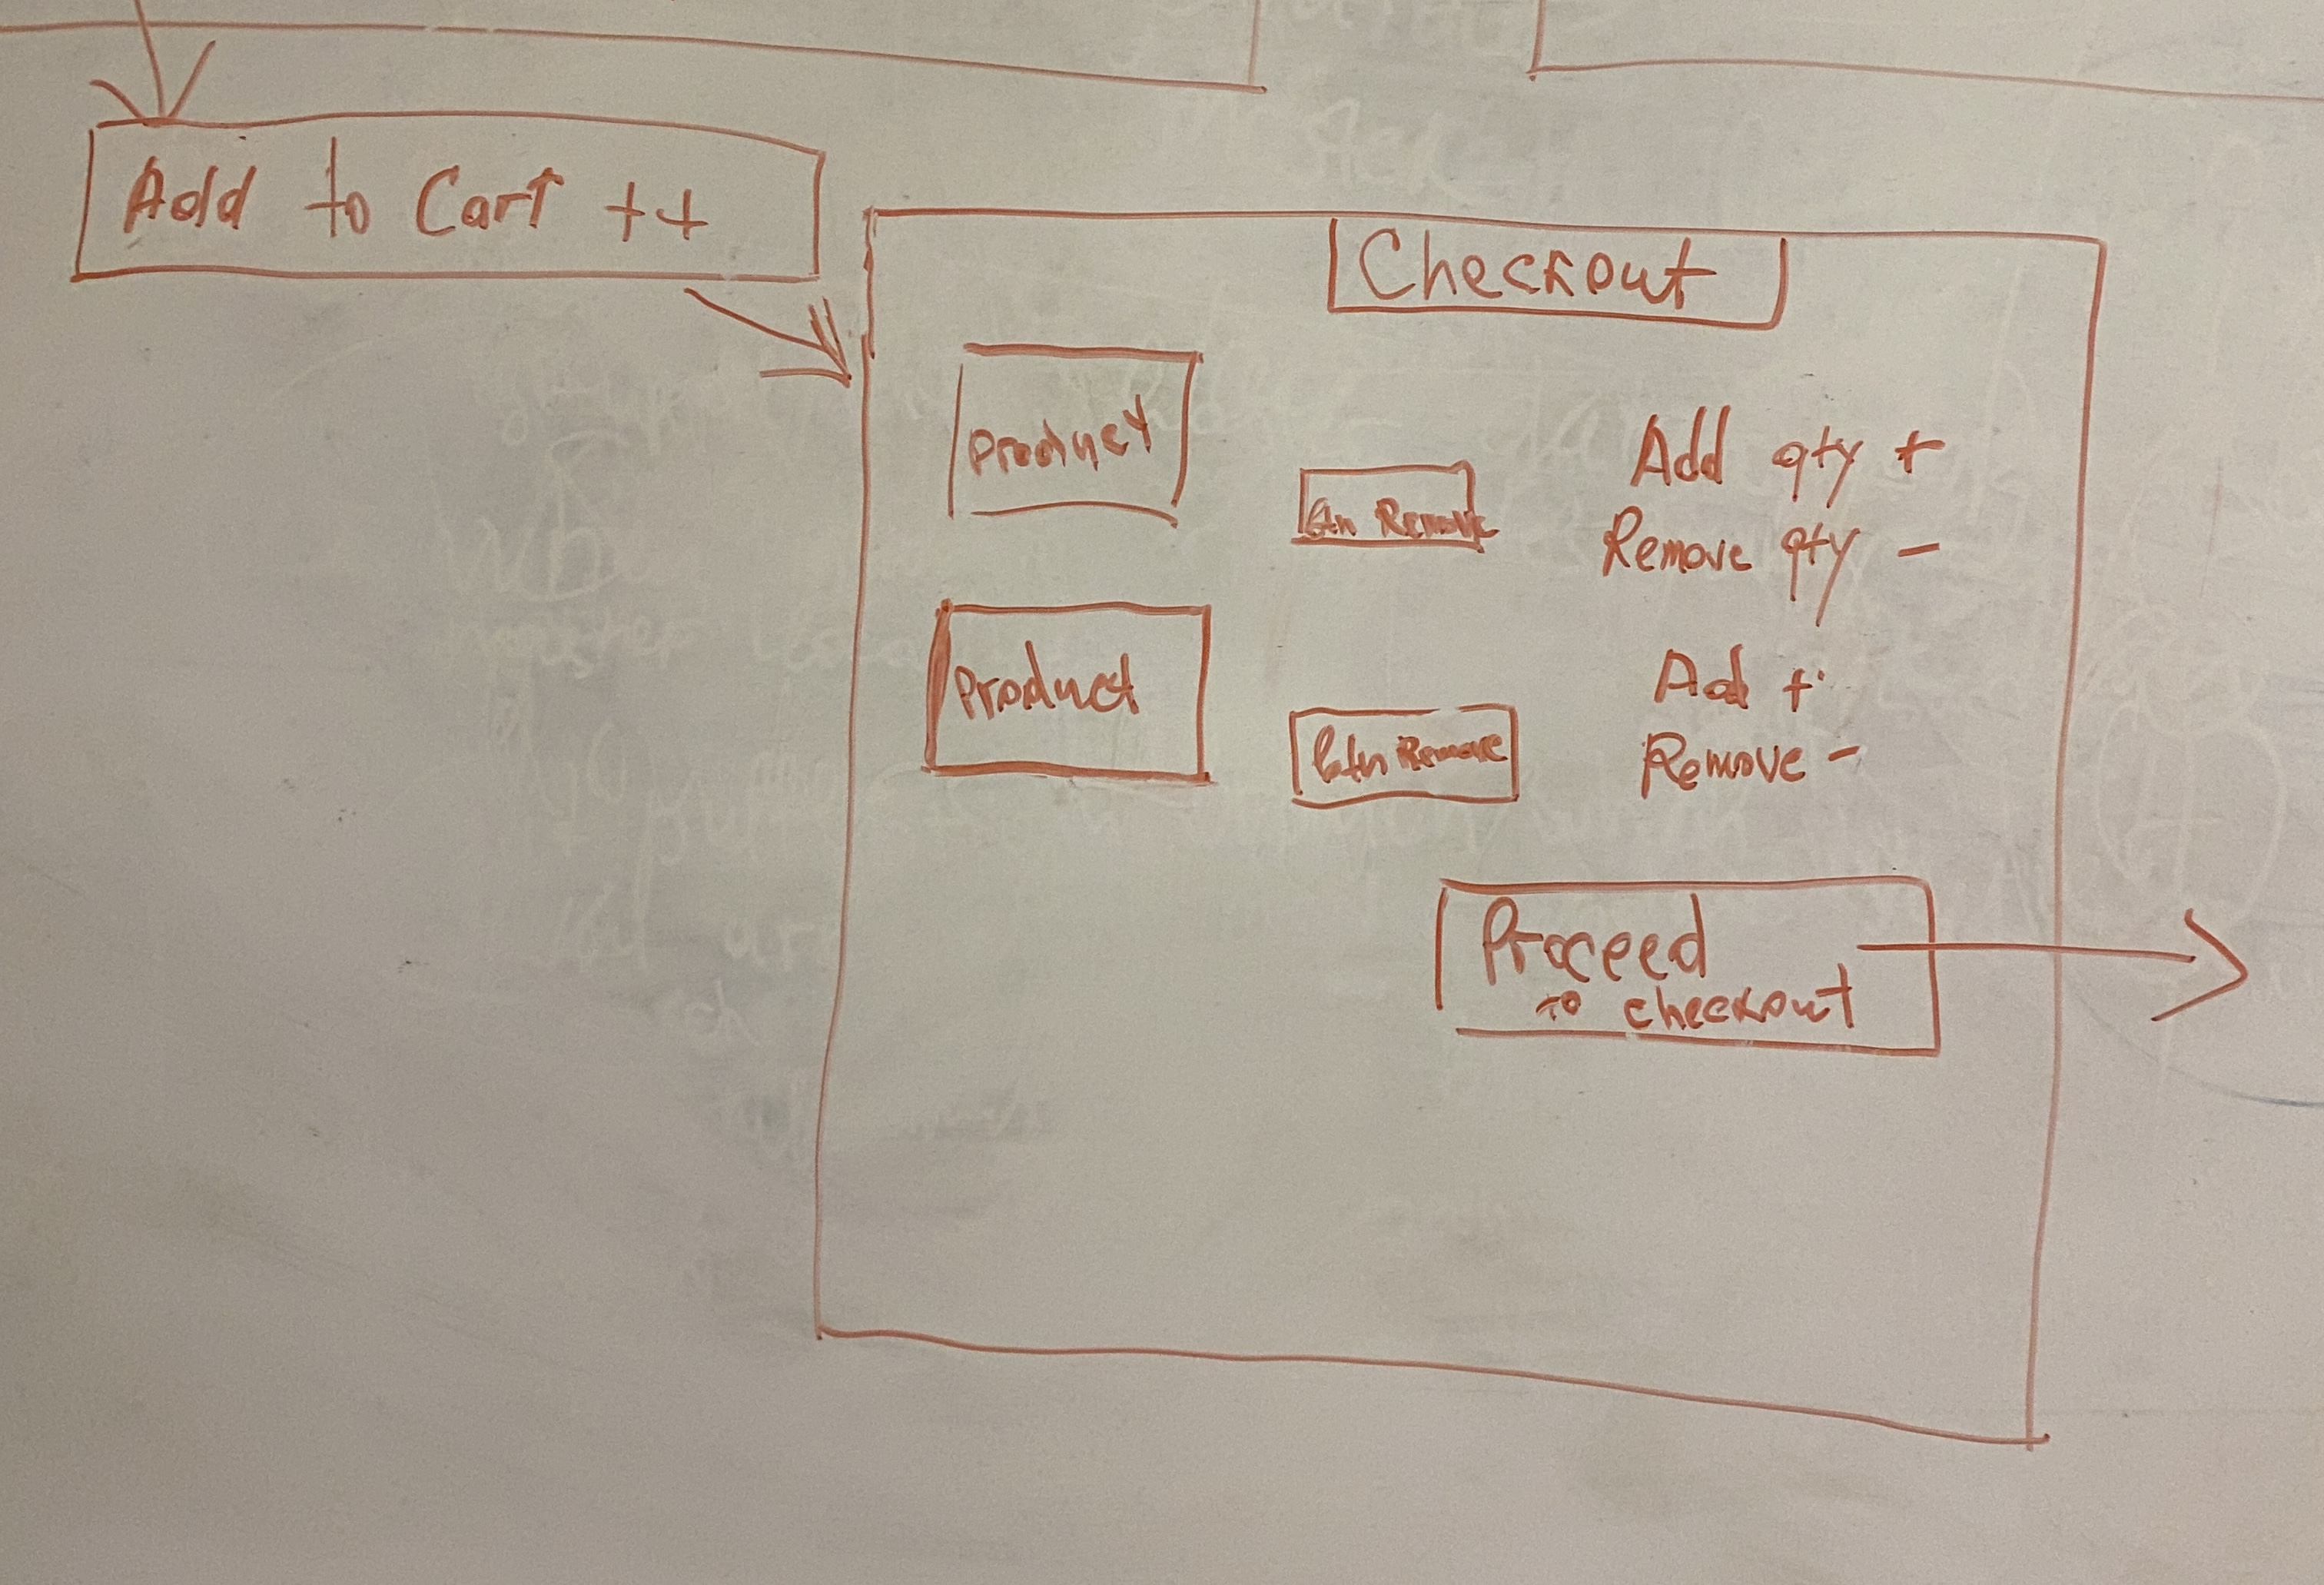 Add to Cart ++
Checkout
Product
Btn Remove
Add qty +
Remove qty -
Product
Btn Remove
Add +
Remove -
Proceed
to checkout